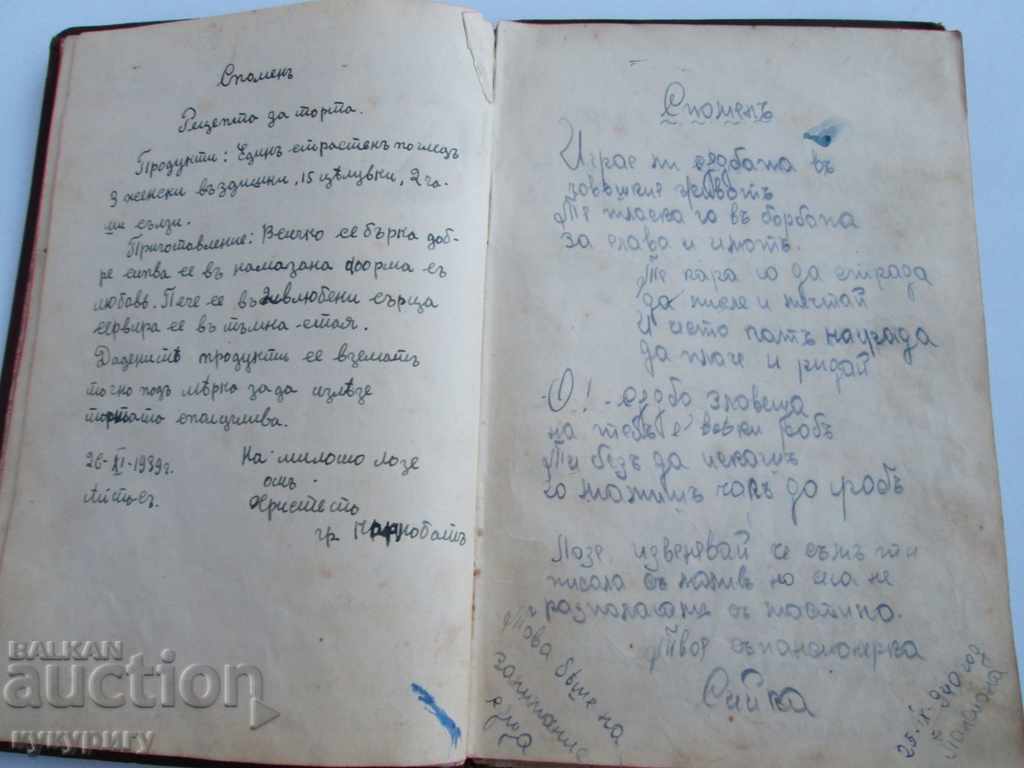 Споменъ
Рецепта за торта.
Продукти: Единъ страстенъ погледъ
3 женски въздишки, 15 цѣлувки, 2 ча-
ши сълзи.
Приготовление: Всичко се бърка доб-
ре сипва се въ намазана форма съ
любовь. Пече се въ влюбени сърца
сервира се въ тъмна стая.
Дадените продукти се взематъ
точно подъ мѣрка за да излѣзе
тортата сполучлива.
26-XI-1939г.
На милото Лозе
отъ
Христето
гр. Карнобатъ
Споменъ
Играе ни сѫдбата въ
живота
Тя тласка го въ борбата
за слава и имотъ.
Тя кара го да страда
да мисле и мечтай
И често пѫтъ награда
да плаче и ридай
О! сѫдбо зловеща
на тебъ е робъ
Ти безъ да искашъ
го мѫчишъ чакъ до гробъ
Лозе, извенявай че съмъ ти
писала съ молив но сега не
разполагаме съ мастило.
Твоя съпансионерка
Сийка
Това бѣше на
занимание
25.I.X.940 год
BALKAN
auction
кукуригу